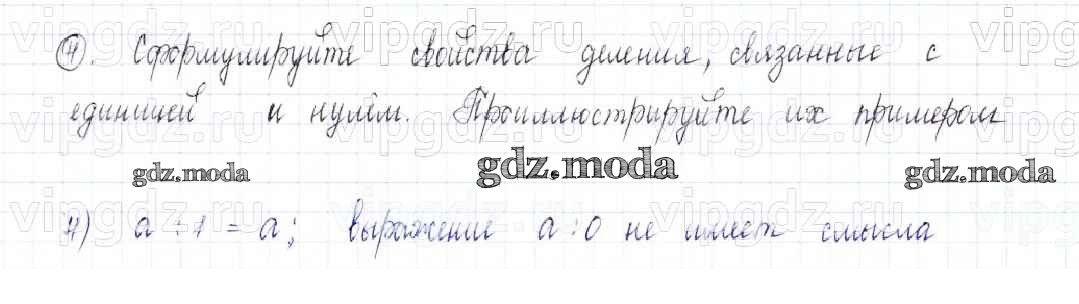 ④. Сформулируйте свойства деления, связанные с
единицей и нулём. Проиллюстрируйте их примером
gdz.moda gdz.moda gdz.moda
4) a : 1 = a; выражение a : 0 не имеет смысла
vipgdz.ru vipgdz.ru vipgdz.ru vipgdz.ru